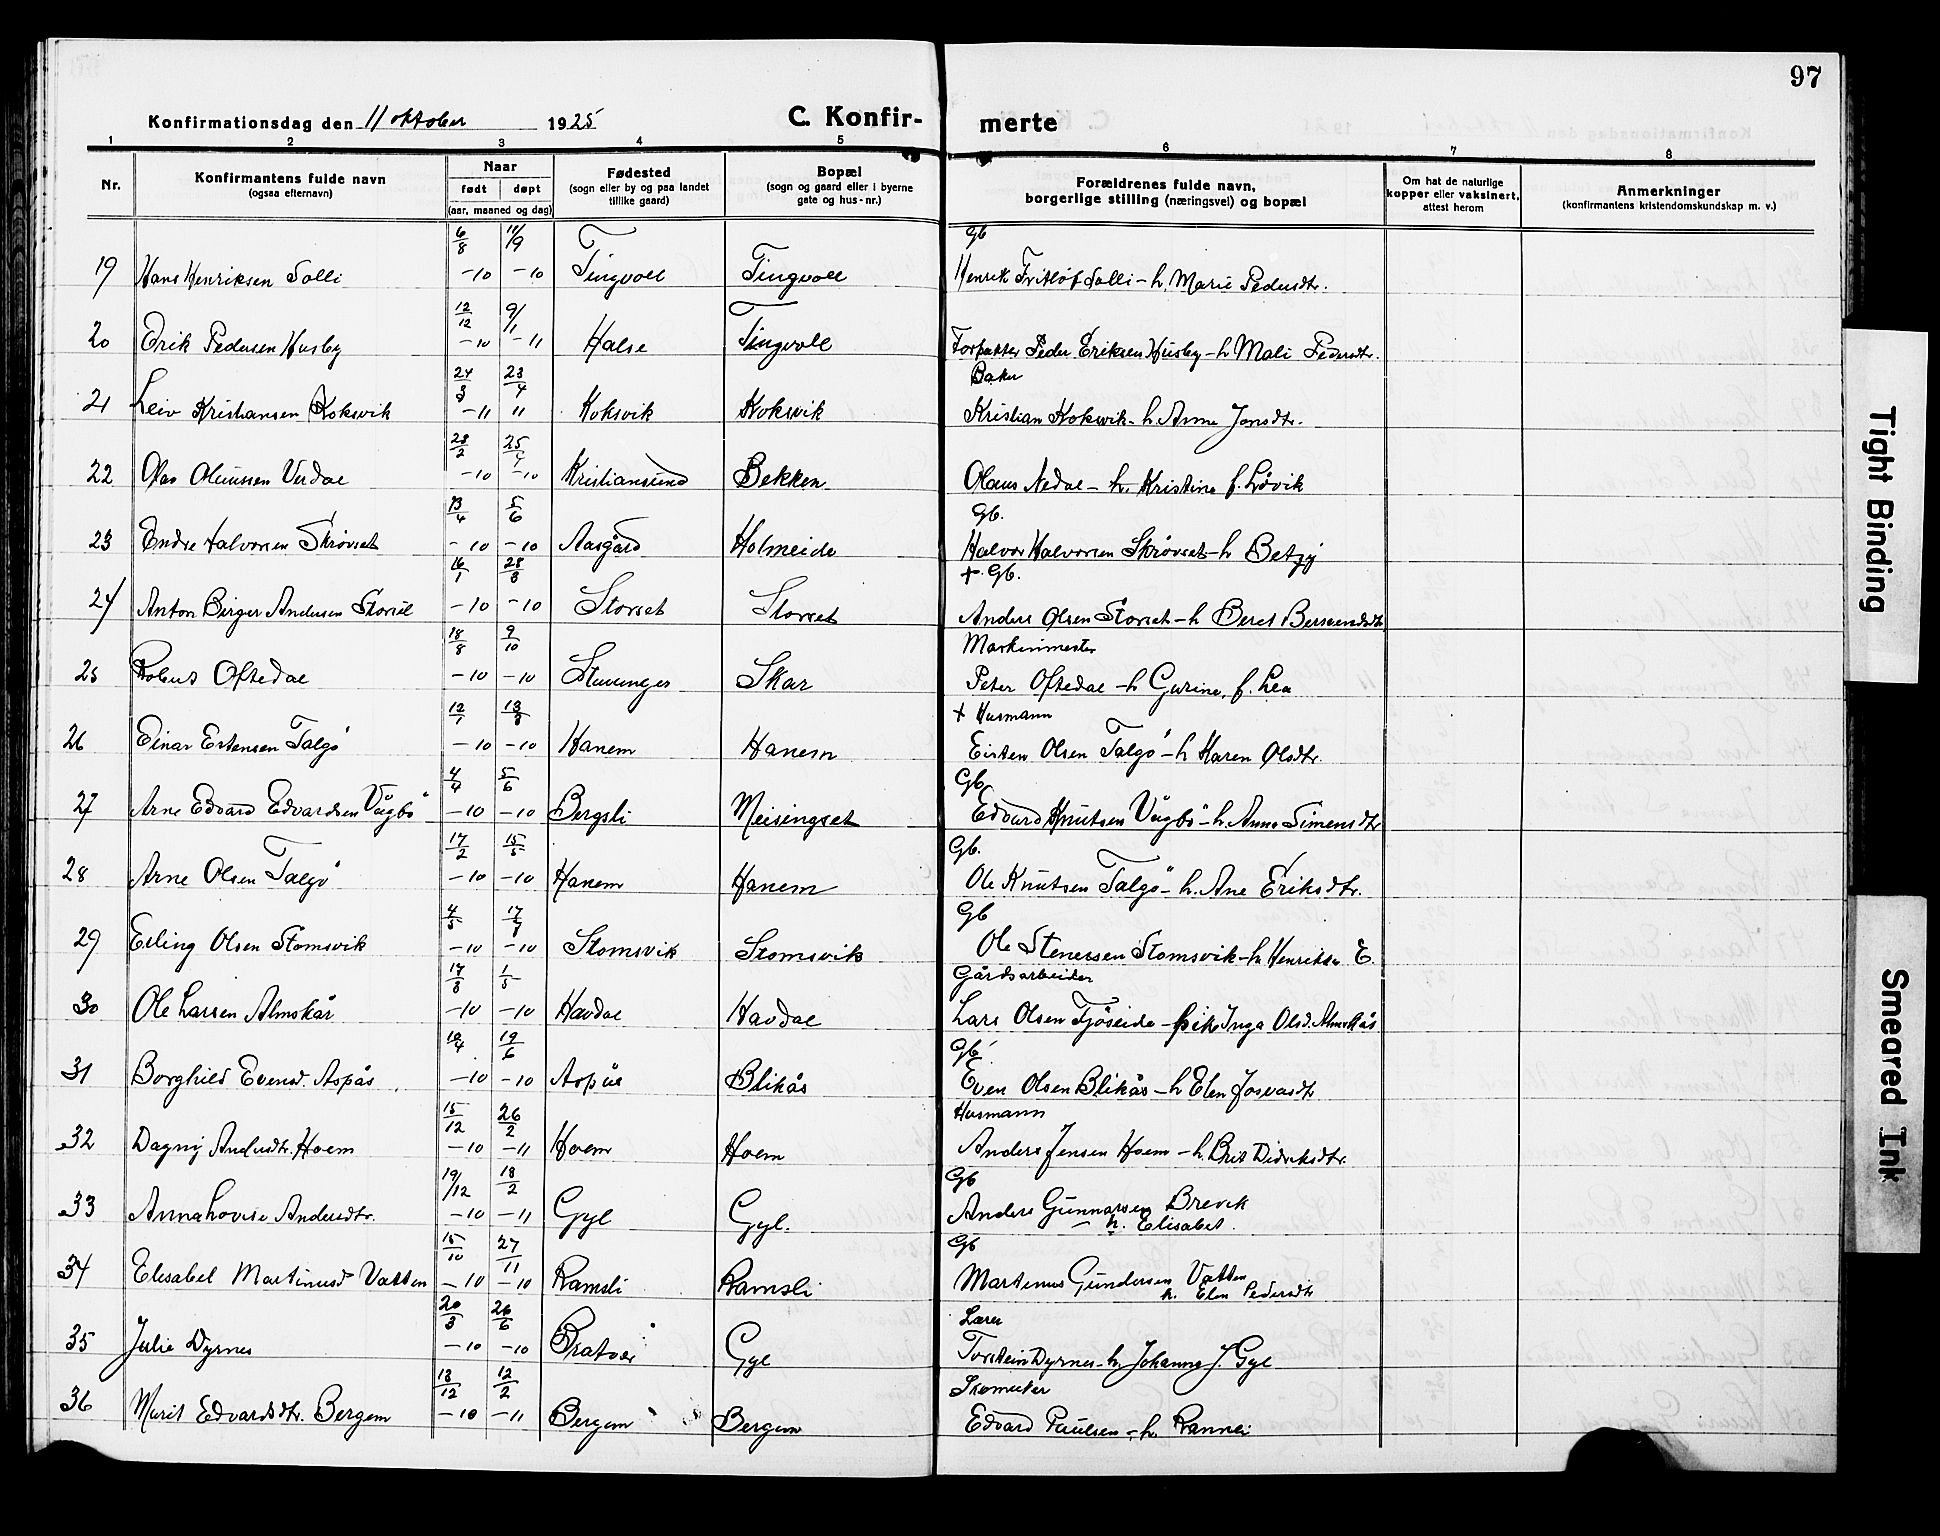 97
Konfirmationsdag den 11 oktober 1925 C. Konfir- merte
1 2 3 4 5 6 7 8
Nr. Konfirmantens fulde navn (ogsaa efternavn) Naar født døpt (aar, maaned og dag) Fødested (sogn eller by og paa landet tillike gaard) Bopæl (sogn og gaard eller i byerne gate og hus-nr.) Forældrenes fulde navn, borgerlige stilling (næringsvei) og bopæl Om hat de naturlige kopper eller vaksinert, attest herom Anmerkninger (konfirmantens kristendomskundskap m. v.)
6/8 11/9 Gb
19 Hans Henriksen Solli -10 -10 Tingvoll Tingvoll Henrik Fritlöf Solli - h. Marie Pedersdtr.
12/12 9/1
20 Erik Pedersen Husby -10 -11 Halse Tingvoll Forpakter Peder Eriksen Husby - h Mali Pedersdtr.
24/3 23/4 Baker
21 Leiv Kristiansen Koksvik -11 11 Koksvik Koksvik Kristian Koksvik - h. Anne Jonsdtr.
28/2 25/
22 Olav Olaussen -10 -10 Kristiansund Bekken Olaus - h. Kristine f. Lövik
13/4 5/6 Gb.
23 Endre Halvorsen Skrövset -10 -10 Aasgård Holmeide Halvor Halvorsen Skrövset - h Betzy
16/1 28/3 + Gb.
24 Anton Birger Andersen Storset -10 -10 Storset Storset Anders Olsen Storset - h Beret Bersvendsdtr
18/8 9/10 Maskinmester
25 Oftedal -10 -10 Stavanger Skar Peter Oftedal - h Gurine, f. Lea
12/1 13/3 + Husmann
26 Einar Estensen Talgö -10 -10 Hanem Hanem Eisten Olsen Talgö - h Karen Olsdtr.
4/4 5/6 Gb
27 Arne Edvard Edvardsen Vågbö -10 -10 Bergsli Meisingset Edvard Knutsen Vågbö - h. Anne Simensdtr
17/2 15/5 Gb.
28 Arne Olsen Talgö -10 -10 Hanem Hanem Ole Knutsen Talgö - h. Ane Eriksdtr.
4/5 17/7 Gb
29 Erling Olsen Stomsvik -10 -10 Stomsvik Stomsvik Ole Stenersen Stomsvik - h Henrikke E.
17/3 1/5 Gårdsarbeider
30 Ole Larsen Almskår -10 -10 Havdal Havdal Lars Olsen Fjöseide - pike Inga Olsd.
/4 19/6 Gb.
31 Borghild Evensd. Aspås -10 -10 Aspås Blikås Even Olsen Blikås - h Elen Josvasdtr
15/12 26/2 Husmann
32 Dagny Andersdtr. Hoem -10 -11 Hoem Hoem Anders Jensen Hoem - h. Brit Didriksdtr.
19/12 18/2 Gb
33 Anna Lovise Andersdtr. -10 -11 Gyl Gyl. Anders Gunnarsen Brevik
- h. Elisabet.
15/10 27/11 Gb
34 Elisabet Martinusd Vatten -10 -10 Ramsli Ramsli Martinus Gundersen Vatten
h. Elen Pedersdtr
20/3 26/6 Lærer
35 Julie Dyrnes -10 -10 Bratvær Gyl Torstein Dyrnes - h. Johanne J. Gyl
13/12 12/2 Skomaker
36 Marit Edvardsdtr. Bergem -10 -11 Bergem Bergem Edvard Paulsen - h. Rannei
Tight Binding
Smeared Ink